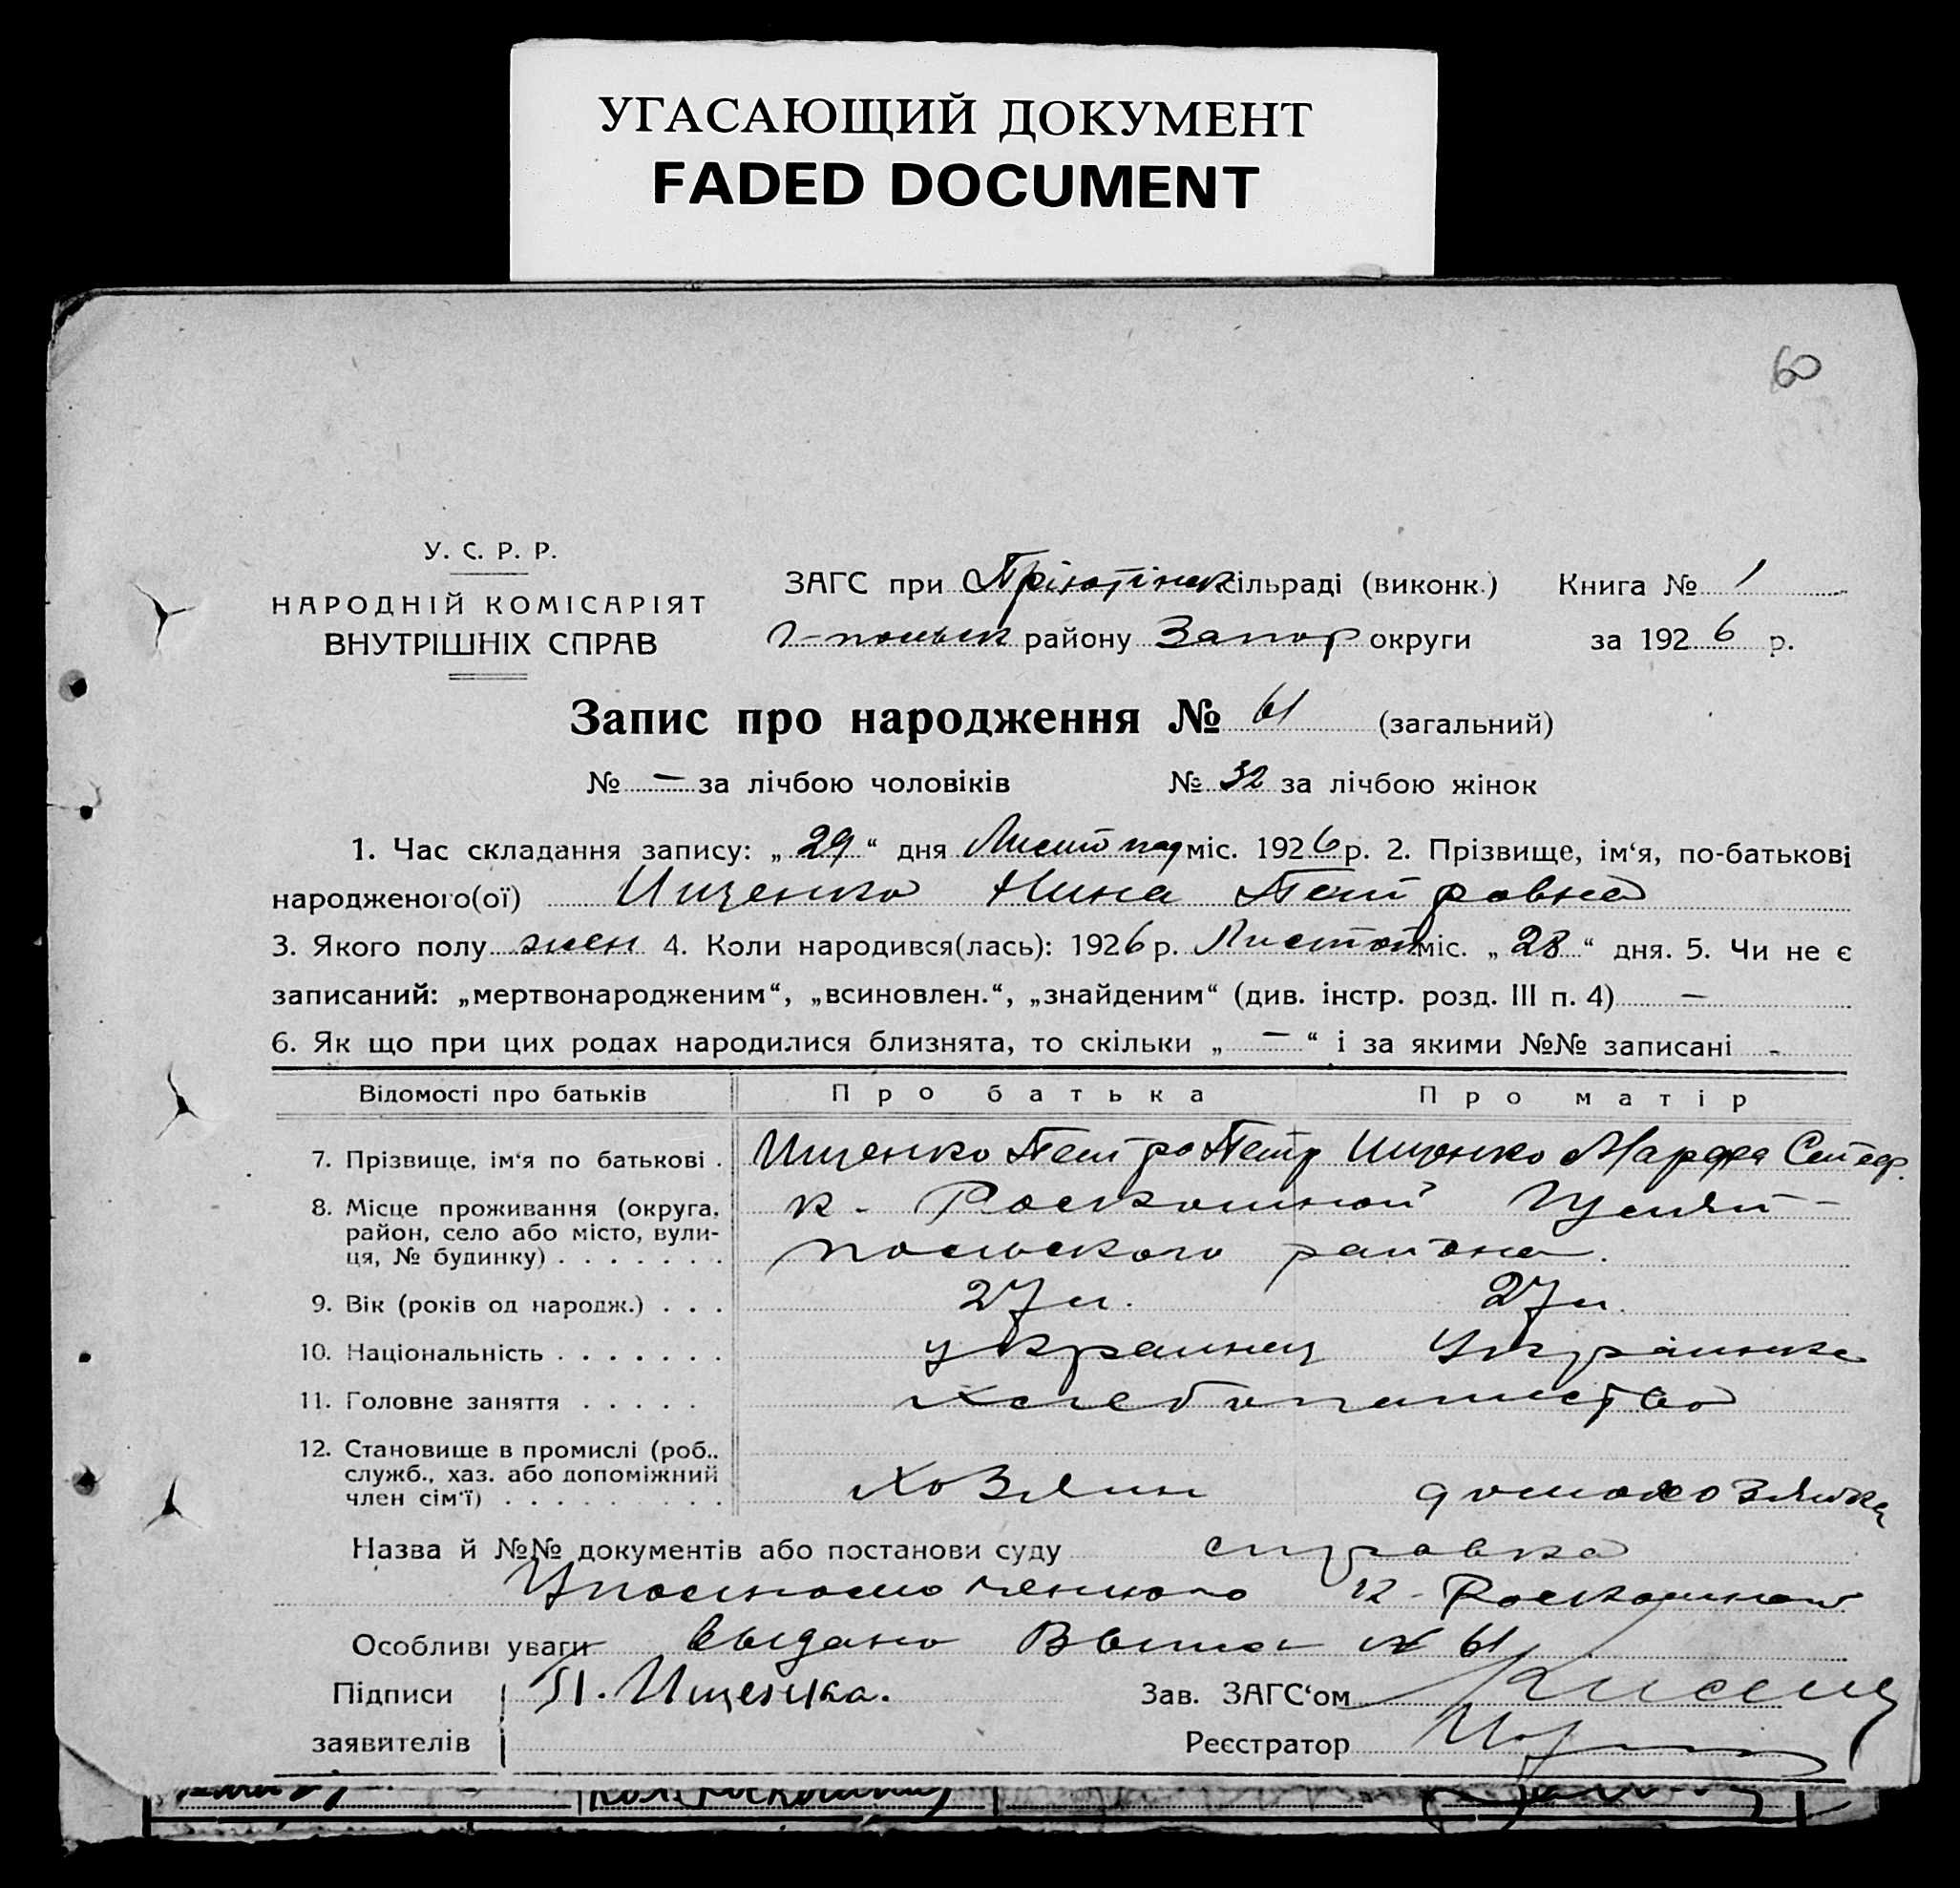 УГАСАЮЩИЙ ДОКУМЕНТ
FADED DOCUMENT
60
У. С. Р. Р.
НАРОДНІЙ КОМІСАРІЯТ
ВНУТРІШНІХ СПРАВ
ЗАГС при Прiютiнск сільраді (виконк.) Книга № 1
г-польск району Запор округи за 1926 р.
Запис про народження № 61 (загальний)
№ — за лічбою чоловіків № 32 за лічбою жінок
1. Час складання запису: „29“ дня Листопад міс. 1926 р. 2. Прізвище, ім‘я, по-батькові
народженого(ої) Ищенко Нина Петровна
3. Якого полу жен 4. Коли народився(лась): 1926 р. Листоп міс. „28“ дня. 5. Чи не є
записаний: „мертвонародженим“, „всиновлен.“, „знайденим“ (див. інстр. розд. III п. 4) —
6. Як що при цих родах народилися близнята, то скільки „—“ і за якими №№ записані -
Відомості про батьків Про батька Про матір
7. Прізвище, ім‘я по батькові . Ищенко Петро Петр Ищенко Марфа Степ
8. Місце проживання (округа, район, село або місто, вули-ця, № будинку) . . . . . . . к. Роскошной Гуляй-
польского района.
9. Вік (років од народж.) . . . 27 л. 27 л.
10. Національність . . . . . . . украинец Украинка
11. Головне заняття . . . . . хлебопашество
12. Становище в промислі (роб., служб., хаз. або допоміжний член сім‘ї) . . . . . . . . . Хозяин домохозяйка
Назва й №№ документів або постанови суду справка
Уполномоченного к-Роскошной
Особливі уваги выдано Выпис № 61
Підписи П. Ищенка. Зав. ЗАГС‘ом
заявителів Реєстратор